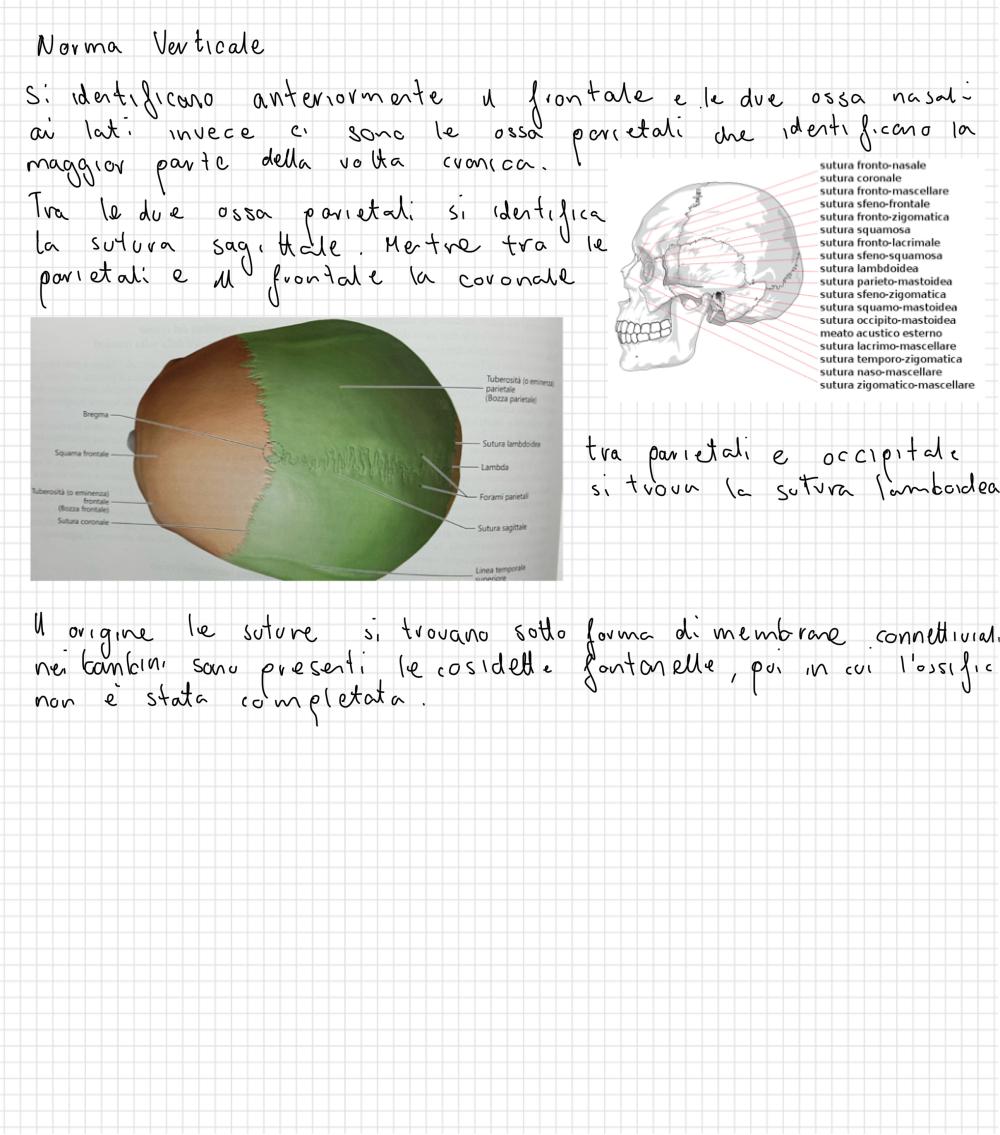 Norma Verticale
Si identificano anteriormente il frontale e le due ossa nasali
ai lati invece ci sono le ossa parietali che identificano la
maggior parte della volta cranica.
sutura fronto-nasale
sutura coronale
sutura fronto-mascellare
sutura sfeno-frontale
sutura fronto-zigomatica
sutura squamosa
sutura fronto-lacrimale
sutura sfeno-squamosa
sutura lambdoidea
sutura parieto-mastoidea
sutura sfeno-zigomatica
sutura squamo-mastoidea
sutura occipito-mastoidea
meato acustico esterno
sutura lacrimo-mascellare
sutura temporo-zigomatica
sutura naso-mascellare
sutura zigomatico-mascellare
Tra le due ossa parietali si identifica
la sutura sagittale. Mentre tra le
parietali e il frontale la coronale
Bregma
Squama frontale
Tuberosità (o eminenza)
frontale
(Bozza frontale)
Sutura coronale
Tuberosità (o eminenza)
parietale
(Bozza parietale)
Sutura lambdoidea
Lambda
Forami parietali
Sutura sagittale
Linea temporale
superiore
tra parietali e occipitale
si trova la sutura lamboidea
Il origine le suture si trovano sotto forma di membrane connettivali
nei bambini sono presenti le cosidette fontanelle, poi in cui l'ossific
non è stata completata.